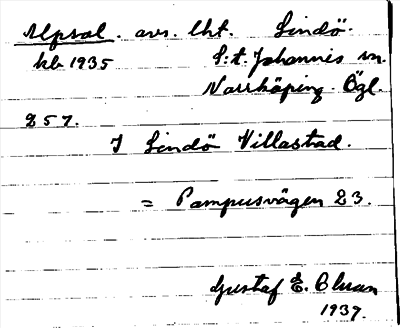 Alpsal. avs. lht. Lindö.
kb 1935 S:t. Johannis sn.
Norrköping. Ögl.
257.
I Lindö Villastad.
= Pampusvägen 23.
Gustaf E. Olman
1937.